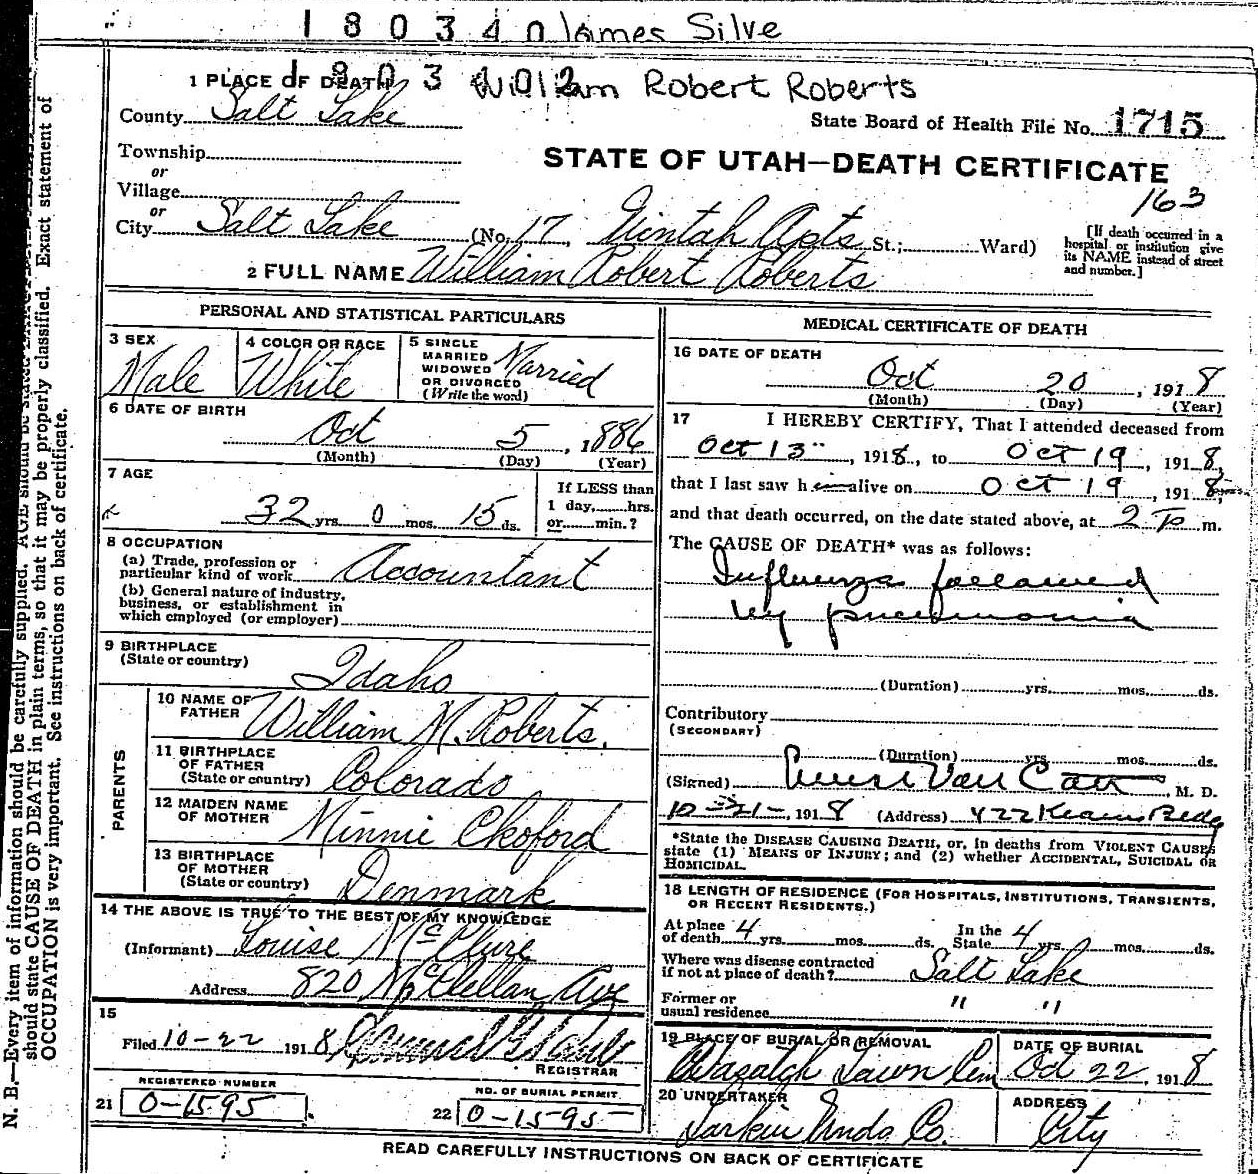 1 8 0 3 4 0 James Silve
1 8 0 3 4 0 1 2 William Robert Roberts
1 PLACE OF DEATH
County Salt Lake
State Board of Health File No. 1715
Township
or
Village
or
STATE OF UTAH—DEATH CERTIFICATE
163
City Salt Lake (No. 17, Uintah Apts St.; Ward)
[If death occurred in a hospital or institution give its NAME instead of street and number.]
2 FULL NAME William Robert Roberts
PERSONAL AND STATISTICAL PARTICULARS
3 SEX Male
4 COLOR OR RACE White
5 SINGLE MARRIED WIDOWED OR DIVORCED (Write the word) Married
6 DATE OF BIRTH
Oct 5, 1886
(Month) (Day) (Year)
7 AGE
32 yrs. 0 mos. 15 ds.
If LESS than 1 day, hrs. or min.?
8 OCCUPATION
(a) Trade, profession or particular kind of work Accountant
(b) General nature of industry, business, or establishment in which employed (or employer)
9 BIRTHPLACE
(State or country) Idaho
PARENTS
10 NAME OF FATHER William M. Roberts.
11 BIRTHPLACE OF FATHER (State or country) Colorado
12 MAIDEN NAME OF MOTHER Minnie Ckoford
13 BIRTHPLACE OF MOTHER (State or country) Denmark
14 THE ABOVE IS TRUE TO THE BEST OF MY KNOWLEDGE
(Informant) Louise McClure
Address 820 McClellan Ave
15
Filed 10-22 1918
REGISTRAR
REGISTERED NUMBER
21 0-1595
NO. OF BURIAL PERMIT.
22 0-1595
MEDICAL CERTIFICATE OF DEATH
16 DATE OF DEATH
Oct 20, 1918
(Month) (Day) (Year)
17 I HEREBY CERTIFY, That I attended deceased from
Oct 13, 1918, to Oct 19, 1918,
that I last saw him alive on Oct 19, 1918,
and that death occurred, on the date stated above, at 2 P m.
The CAUSE OF DEATH* was as follows:
Influenza followed
by pneumonia
(Duration) yrs. mos. ds.
Contributory
(SECONDARY)
(Duration) yrs. mos. ds.
(Signed) Van Cott, M. D.
10-21-, 1918 (Address) 422 Kearns Bldg
*State the DISEASE CAUSING DEATH, or, in deaths from VIOLENT CAUSES
state (1) MEANS OF INJURY; and (2) whether ACCIDENTAL, SUICIDAL OR
HOMICIDAL.
18 LENGTH OF RESIDENCE (FOR HOSPITALS, INSTITUTIONS, TRANSIENTS,
OR RECENT RESIDENTS.)
At place of death 4 yrs. mos. ds. In the State 4 yrs. mos. ds.
Where was disease contracted if not at place of death? Salt Lake
Former or usual residence " "
19 PLACE OF BURIAL OR REMOVAL Wasatch Lawn Cem
DATE OF BURIAL Oct 22, 1918
20 UNDERTAKER Larkin Undo Co.
ADDRESS City
READ CAREFULLY INSTRUCTIONS ON BACK OF CERTIFICATE
N. B.—Every item of information should be carefully supplied. AGE should be stated
should state CAUSE OF DEATH in plain terms, so that it may be properly classified. Exact statement of
OCCUPATION is very important. See instructions on back of certificate.